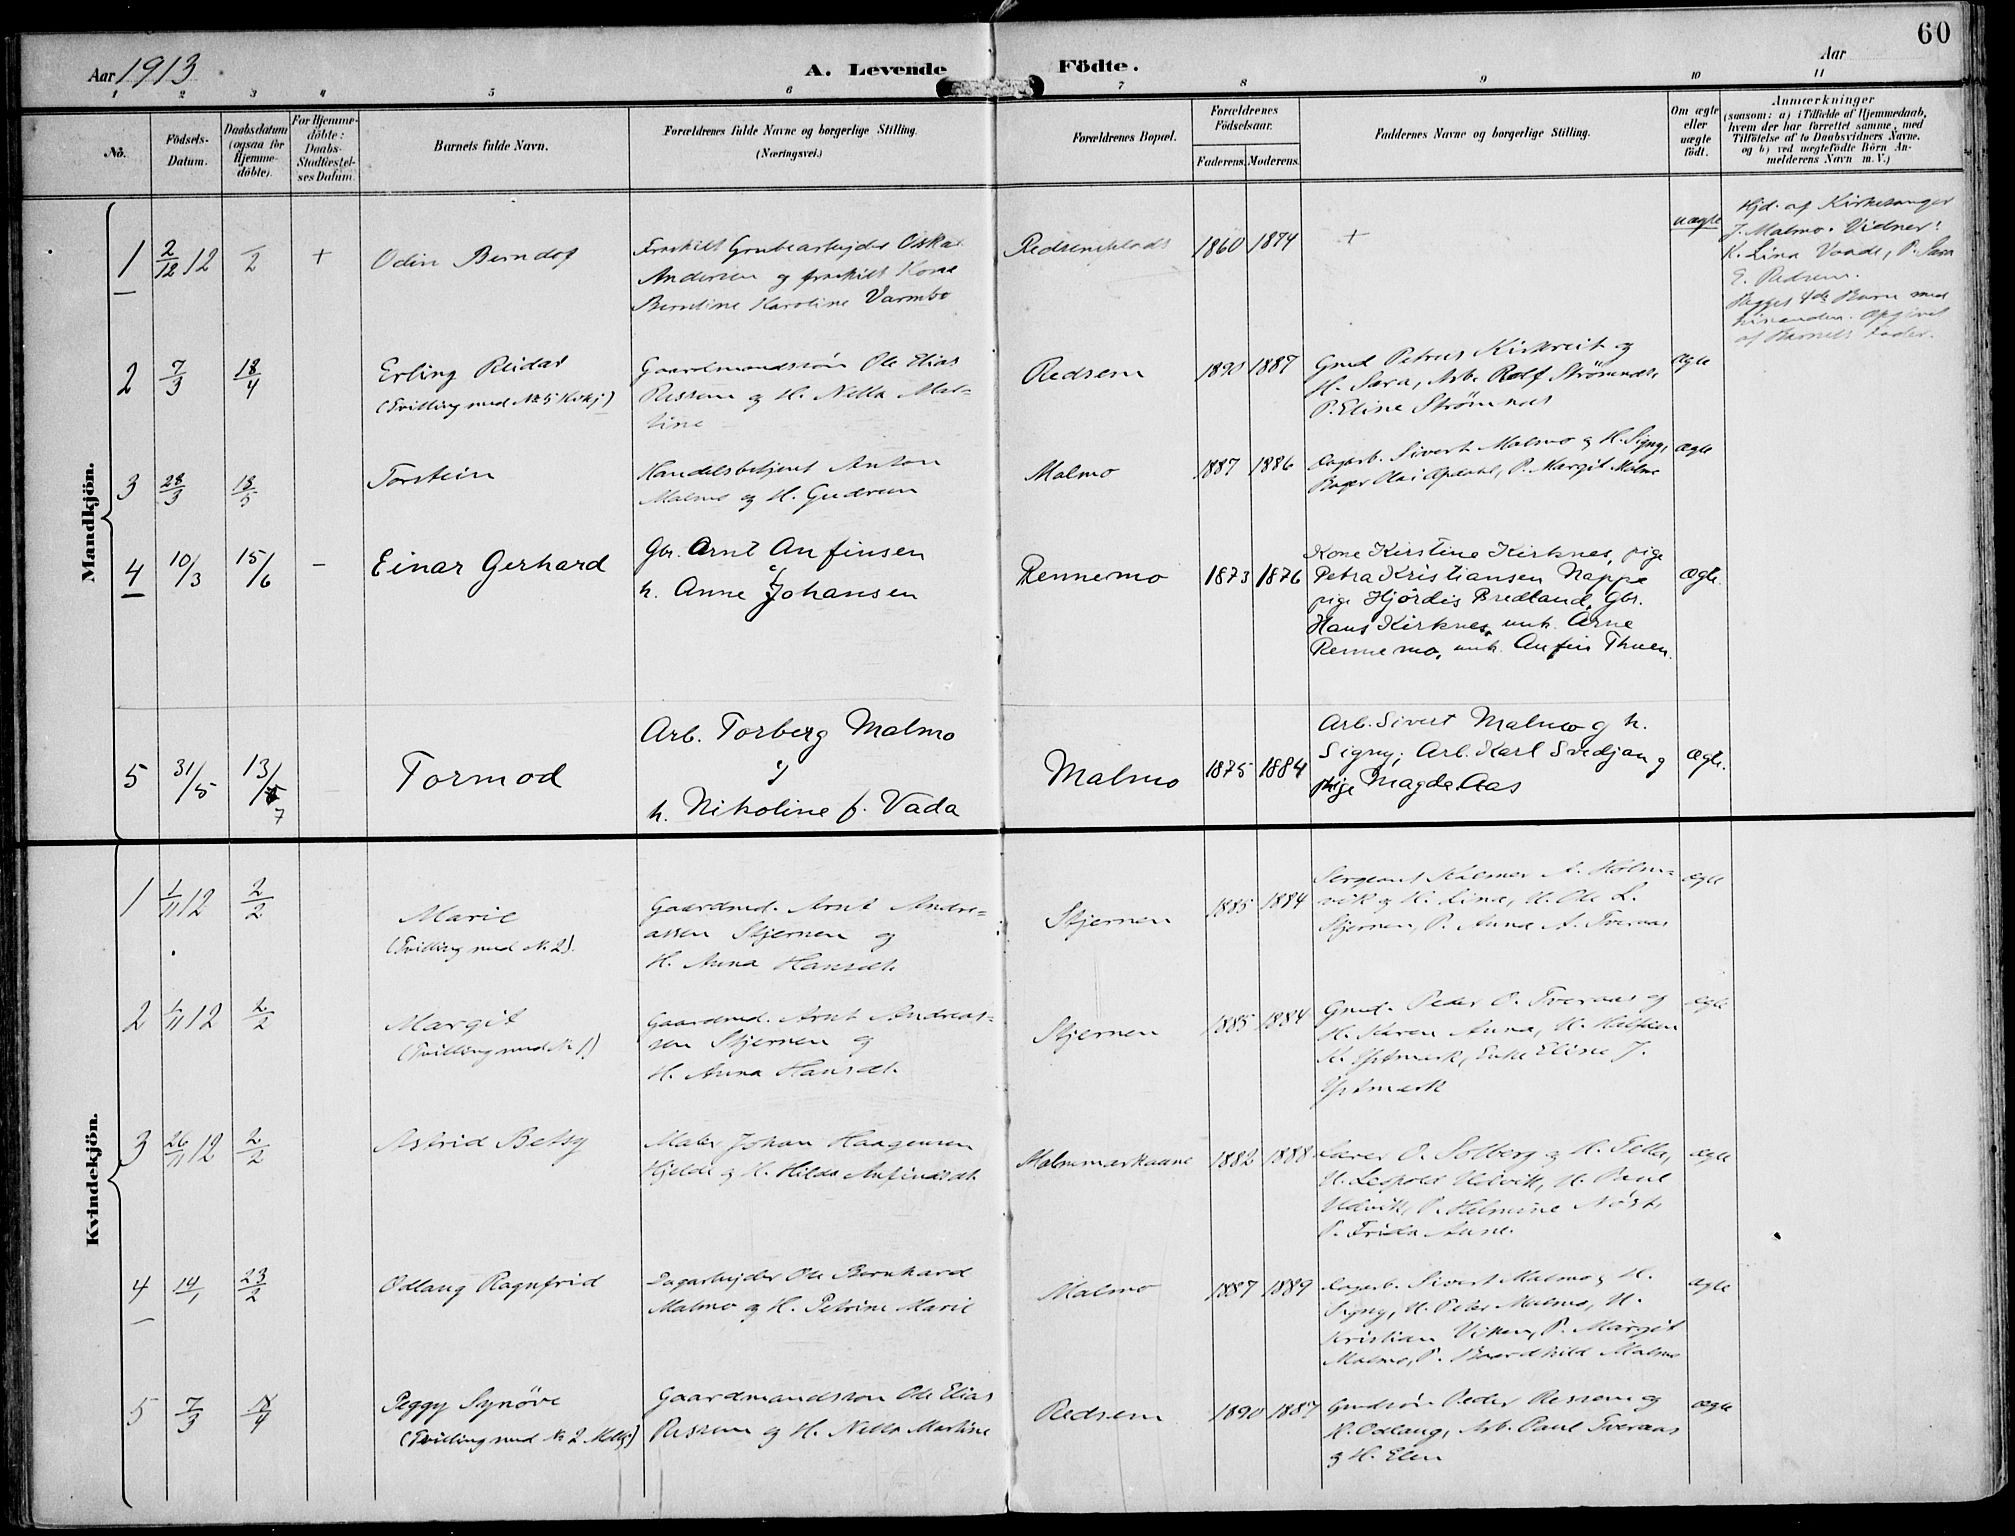 60
Aar 1913
A. Levende Födte.
Aar
1 2 3 4 5 6 7 8 9 10 11
No.
Födsels-
Datum.
Daabsdatum
(ogsaa for
Hjemme-
döbte).
For Hjemme-
döbte:
Daabs-
Stadfæstel-
ses Datum.
Barnets fulde Navn.
Forældrenes fulde Navne og borgerlige Stilling.
(Næringsvei.)
Forældrenes Bopæl.
Forældrenes
Födselsaar.
Faderens. Moderens.
Faddernes Navne og borgerlige Stilling.
Om ægte
eller
uægte
födt.
Anmærkninger
(saasom: a) i Tilfælde af Hjemmedaab,
hvem der har forrettet samme, med
Tilföielse af to Daabsvidners Navne,
og b) ved uægtefödte Börn An-
melderens Navn m. V.)
Mandkjön.
1 2/12 12 /2 + Odin Berndof
Fraskilt Grubearbejder Oskar
Andersen og fraskilt Kone
Berntine Karoline Varmbo
Redsemplads 1860 1874 + uægte
Hjd. af Kirkesanger
J. Malmo. Vidner:
K. Lina Vaade, P. Sara
E. Redsem.
Begges 4de Barn med
hinanden. Opgivet
af Barnets Fader.
2 7/3 18/4 Erling Reidar
(Tvilling med No 5 Kvkj)
Gaardmandssön Ole Elias
Ressem og H. Nella Mar-
tine
Redsem 1890 1887
Gmd Petrus Kirkreit og
H. Sara, Arb. Rolf Strömnes
P. Eline Strömnes
ægte
3 28/3 18/5 Torstein
Handelsbetjent Anton
Malmo og H. Gudrun
Malmo 1887 1886
Dagarb. Sivert Malmo og H. Signy,
Bager Olai Opdahl, P. Margit Malmo
ægte
4 10/3 15/6 – Einar Gerhard
Gbr. Arnt Anfinsen
og
h. Anne Johansen
Rennemo 1873 1876
Kone Kirstine Kirknes, pige
Petra Kristiansen Nappe
pige Hjördis Bredland, Gbr.
Hans Kirknes, unk. Arne
Rennemo, unk. Anfin Thuen.
ægte.
5 31/5 13/7 Tormod
Arb. Torberg Malmo
og
h. Nikoline f. Vada
Malmo 1875 1884
Arb. Sivert Malmo og h.
Signy; Arb. Karl Svedjan og
pige Magda Aas
ægte.
Kvindekjön.
1 1/11 12 2/2 Marie
(Tvilling med No 2).
Gaardmd. Arnt Andre-
assen Stjernen og
H. Anna Hansdt.
Stjernen 1885 1884
Sergeant Hilmer A. Holm-
vik og H. Lina, U. Ole L.
Stjernen, P. Anna A. Tveraas
ægte
2 1/11 12 2/2 Margit
(Tvilling med No 1)
Gaardmd. Arnt Andreas-
sen Stjernen og
H. Anna Hansdt.
Stjernen 1885 1884
Gmd. Peder O. Tveraas og
H. Karen Anna, U. Halfdan
K. Östmark, Enke Elise J.
Östmark
ægte
3 26/11 12 2/2 Astrid Betsy
Maler Johan Haagensen
Hjelde og H. Hilda Anfinsdt.
Malmmarkaune 1882 1888
Lærer O. Solberg og H. Tella,
U. Leopold Udvik, U. Paul
Udvik, P. Helmine Nöst,
P. Frida Aune.
ægte
4 14/1 23/2 Odlaug Ragnfrid
Dagarbejder Ole Bernhard
Malmo og H. Petrine Marie
Malmo 1887 1889
Dagarb. Sivert Malmo og H.
Signy, U. Peter Malmo, U.
Kristian Viken, P. Margit
Malmo, P. Baardhild Malmo
ægte
5 7/3 18/4 Peggy Synöve
(Tvilling med No 2 Mkj.)
Gaardmandssön Ole Elias
Ressem og H. Nella Martine
Redsem 1890 1887
Gmdsön Peder Ressem og
H. Odlaug, Arb. Paul Tveraas
og H. Elen
ægte